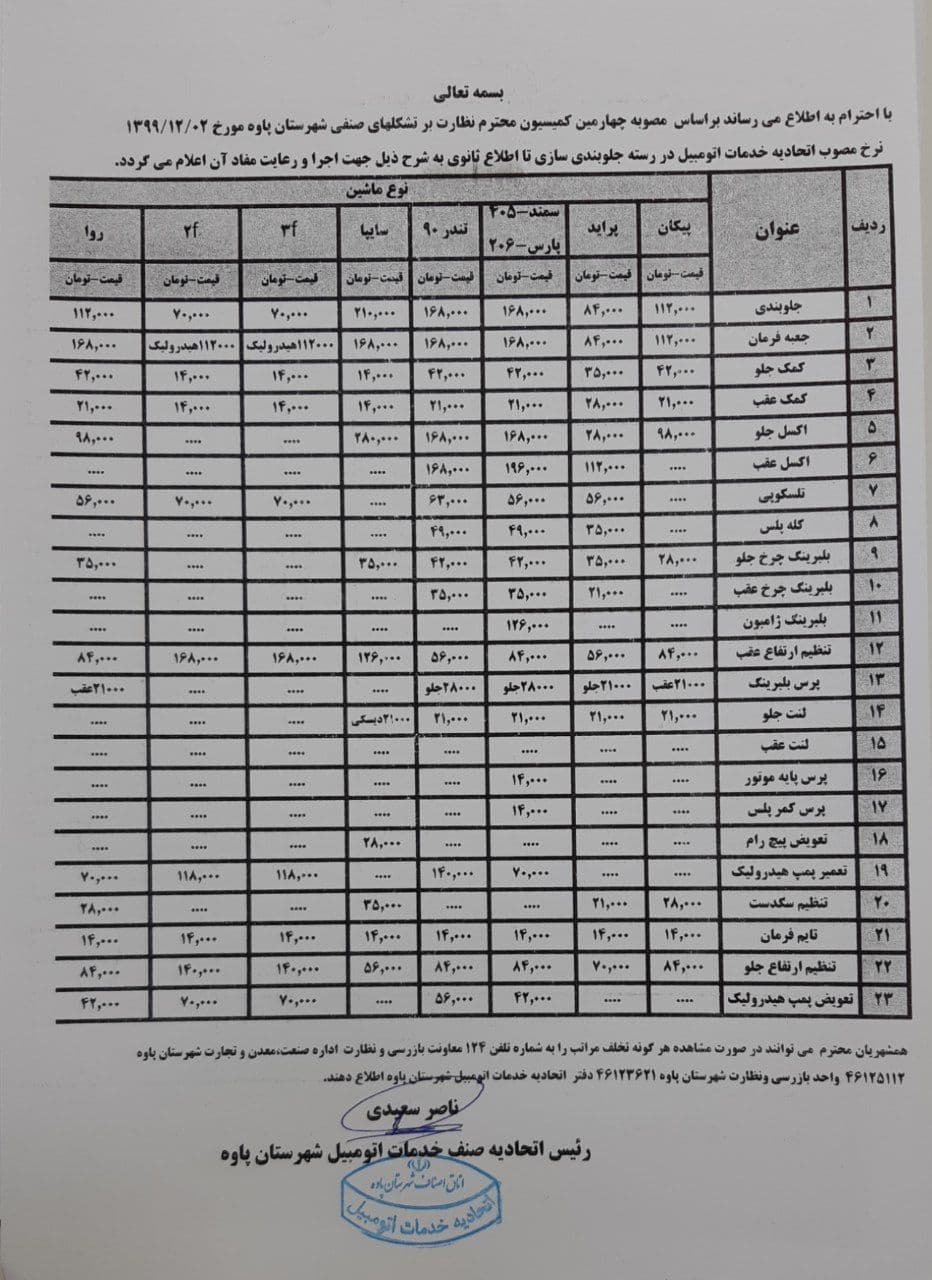 بسمه تعالی
با احترام به اطلاع می رساند براساس مصوبه چهارمین کمیسیون محترم نظارت بر تشکلهای صنفی شهرستان پاوه مورخ ۱۳۹۹/۱۲/۰۲
نرخ مصوب اتحادیه خدمات اتومبیل در رسته جلوبندی سازی تا اطلاع ثانوی به شرح ذیل جهت اجرا و رعایت مفاد آن اعلام می گردد.
ردیف عنوان نوع ماشین
پیکان پراید سمند-۴۰۵ پارس-۲۰۶ تندر ۹۰ سایپا ۳f ۲f روا
قیمت-تومان قیمت-تومان قیمت-تومان قیمت-تومان قیمت-تومان قیمت-تومان قیمت-تومان قیمت-تومان
۱ جلوبندی ۱۱۲,۰۰۰ ۸۴,۰۰۰ ۱۶۸,۰۰۰ ۱۶۸,۰۰۰ ۲۱۰,۰۰۰ ۷۰,۰۰۰ ۷۰,۰۰۰ ۱۱۲,۰۰۰
۲ جعبه فرمان ۱۱۲,۰۰۰ ۸۴,۰۰۰ ۱۶۸,۰۰۰ ۱۶۸,۰۰۰ ۱۶۸,۰۰۰ ۱۱۲۰۰۰هیدرولیک ۱۱۲۰۰۰هیدرولیک ۱۶۸,۰۰۰
۳ کمک جلو ۴۲,۰۰۰ ۳۵,۰۰۰ ۴۲,۰۰۰ ۴۲,۰۰۰ ۱۴,۰۰۰ ۱۴,۰۰۰ ۱۴,۰۰۰ ۴۲,۰۰۰
۴ کمک عقب ۲۱,۰۰۰ ۲۸,۰۰۰ ۲۱,۰۰۰ ۲۱,۰۰۰ ۱۴,۰۰۰ ۱۴,۰۰۰ ۱۴,۰۰۰ ۲۱,۰۰۰
۵ اکسل جلو ۹۸,۰۰۰ ۲۸,۰۰۰ ۱۶۸,۰۰۰ ۱۶۸,۰۰۰ ۲۸۰,۰۰۰ .... .... ۹۸,۰۰۰
۶ اکسل عقب .... ۱۱۲,۰۰۰ ۱۹۶,۰۰۰ ۱۶۸,۰۰۰ .... .... .... ....
۷ تلسکوپی .... ۵۶,۰۰۰ ۵۶,۰۰۰ ۶۳,۰۰۰ .... ۷۰,۰۰۰ ۷۰,۰۰۰ ۵۶,۰۰۰
۸ کله پلس .... ۳۵,۰۰۰ ۴۹,۰۰۰ ۴۹,۰۰۰ .... .... .... ....
۹ بلبرینگ چرخ جلو ۲۸,۰۰۰ ۳۵,۰۰۰ ۴۲,۰۰۰ ۴۲,۰۰۰ ۳۵,۰۰۰ .... .... ۳۵,۰۰۰
۱۰ بلبرینگ چرخ عقب .... ۲۱,۰۰۰ ۳۵,۰۰۰ ۳۵,۰۰۰ .... .... .... ....
۱۱ بلبرینگ ژامبون .... .... ۱۲۶,۰۰۰ .... .... .... .... ....
۱۲ تنظیم ارتفاع عقب ۸۴,۰۰۰ ۵۶,۰۰۰ ۸۴,۰۰۰ ۵۶,۰۰۰ ۱۲۶,۰۰۰ ۱۶۸,۰۰۰ ۱۶۸,۰۰۰ ۸۴,۰۰۰
۱۳ پرس بلبرینگ ۲۱۰۰۰عقب ۲۱۰۰۰جلو ۲۸۰۰۰جلو ۲۸۰۰۰جلو .... .... .... ۲۱۰۰۰عقب
۱۴ لنت جلو ۲۱,۰۰۰ ۲۱,۰۰۰ ۲۱,۰۰۰ ۲۱,۰۰۰ ۲۱۰۰۰دیسکی .... .... ....
۱۵ لنت عقب .... .... .... .... .... .... .... ....
۱۶ پرس پایه موتور .... .... ۱۴,۰۰۰ .... .... .... .... ....
۱۷ پرس کمر پلس .... .... ۱۴,۰۰۰ .... .... .... .... ....
۱۸ تعویض پیچ رام .... .... .... .... ۲۸,۰۰۰ .... .... ....
۱۹ تعمیر پمپ هیدرولیک .... .... ۷۰,۰۰۰ ۱۴۰,۰۰۰ .... ۱۱۸,۰۰۰ ۱۱۸,۰۰۰ ۷۰,۰۰۰
۲۰ تنظیم سگدست ۲۸,۰۰۰ ۲۱,۰۰۰ .... .... ۳۵,۰۰۰ .... .... ۲۸,۰۰۰
۲۱ تایم فرمان ۱۴,۰۰۰ ۱۴,۰۰۰ ۱۴,۰۰۰ ۱۴,۰۰۰ ۱۴,۰۰۰ ۱۴,۰۰۰ ۱۴,۰۰۰ ۱۴,۰۰۰
۲۲ تنظیم ارتفاع جلو ۸۴,۰۰۰ ۷۰,۰۰۰ ۸۴,۰۰۰ ۸۴,۰۰۰ ۵۶,۰۰۰ ۱۴۰,۰۰۰ ۱۴۰,۰۰۰ ۸۴,۰۰۰
۲۳ تعویض پمپ هیدرولیک .... .... ۴۲,۰۰۰ ۵۶,۰۰۰ .... ۷۰,۰۰۰ ۷۰,۰۰۰ ۴۲,۰۰۰
همشهریان محترم می توانند در صورت مشاهده هر گونه تخلف مراتب را به شماره تلفن ۱۲۴ معاونت بازرسی و نظارت اداره صنعت،معدن و تجارت شهرستان پاوه
۴۶۱۲۵۱۱۲ واحد بازرسی ونظارت شهرستان پاوه ۴۶۱۲۳۶۲۱ دفتر اتحادیه خدمات اتومبیل شهرستان پاوه اطلاع دهند.
ناصر سعیدی
رئیس اتحادیه صنف خدمات اتومبیل شهرستان پاوه
اتاق اصناف شهرستان پاوه
اتحادیه خدمات اتومبیل